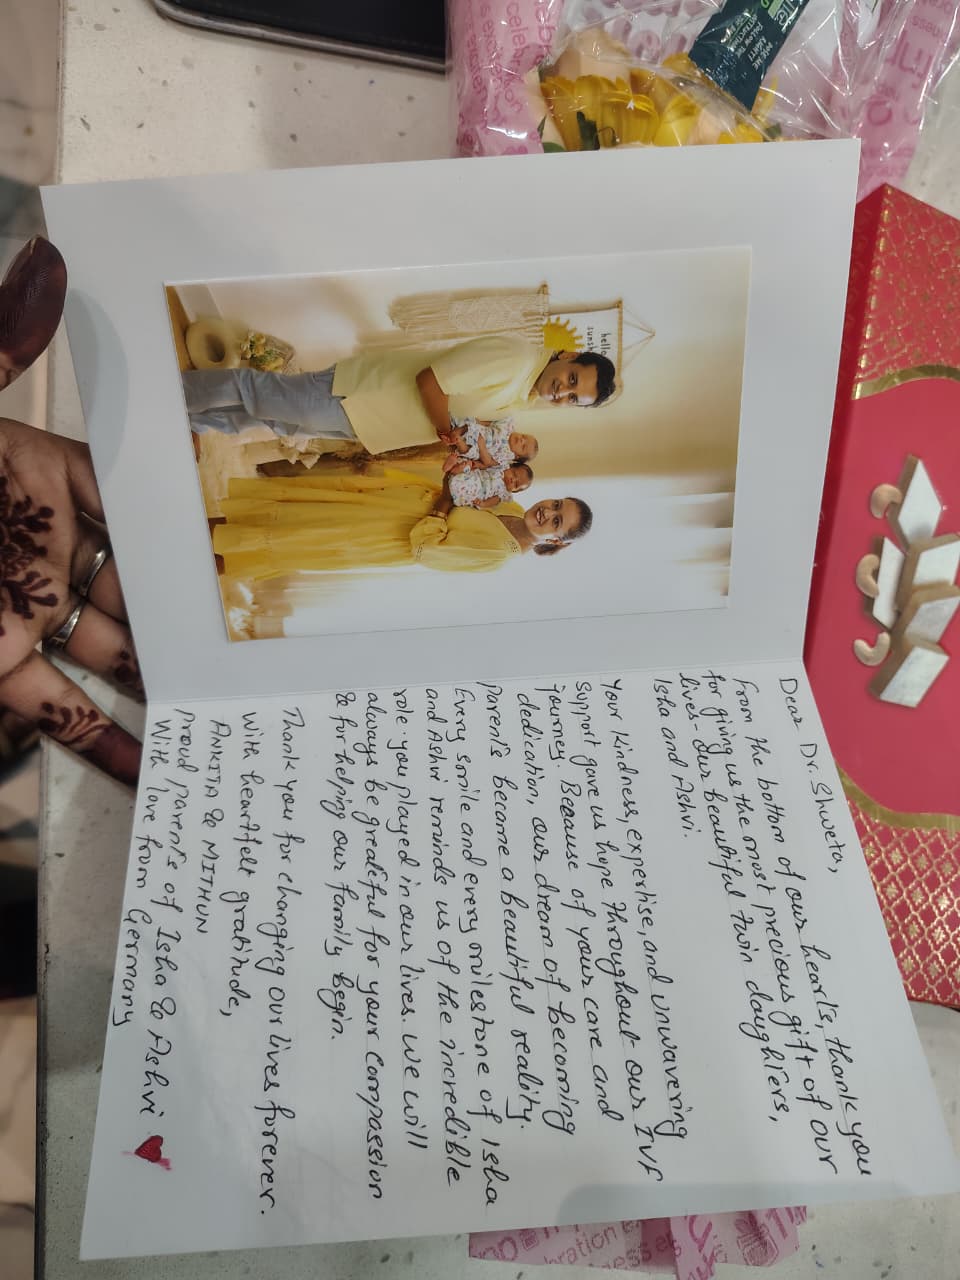 Dear Dr. Shweta,
From the bottom of our hearts, thank you
for giving us the most precious gift of our
lives - our beautiful twin daughters,
Isha and Ashvi.
Your kindness, expertise, and unwavering
support gave us hope throughout our IVF
journey. Because of your care and
dedication, our dream of becoming
parents became a beautiful reality.
Every smile and every milestone of Isha
and Ashvi reminds us of the incredible
role you played in our lives. We will
always be grateful for your compassion
& for helping our family begin.
Thank you for changing our lives forever.
With heartfelt gratitude,
ANKITA & MITHUN
Proud parents of Isha & Ashvi
With love from Germany
hello
sunsh